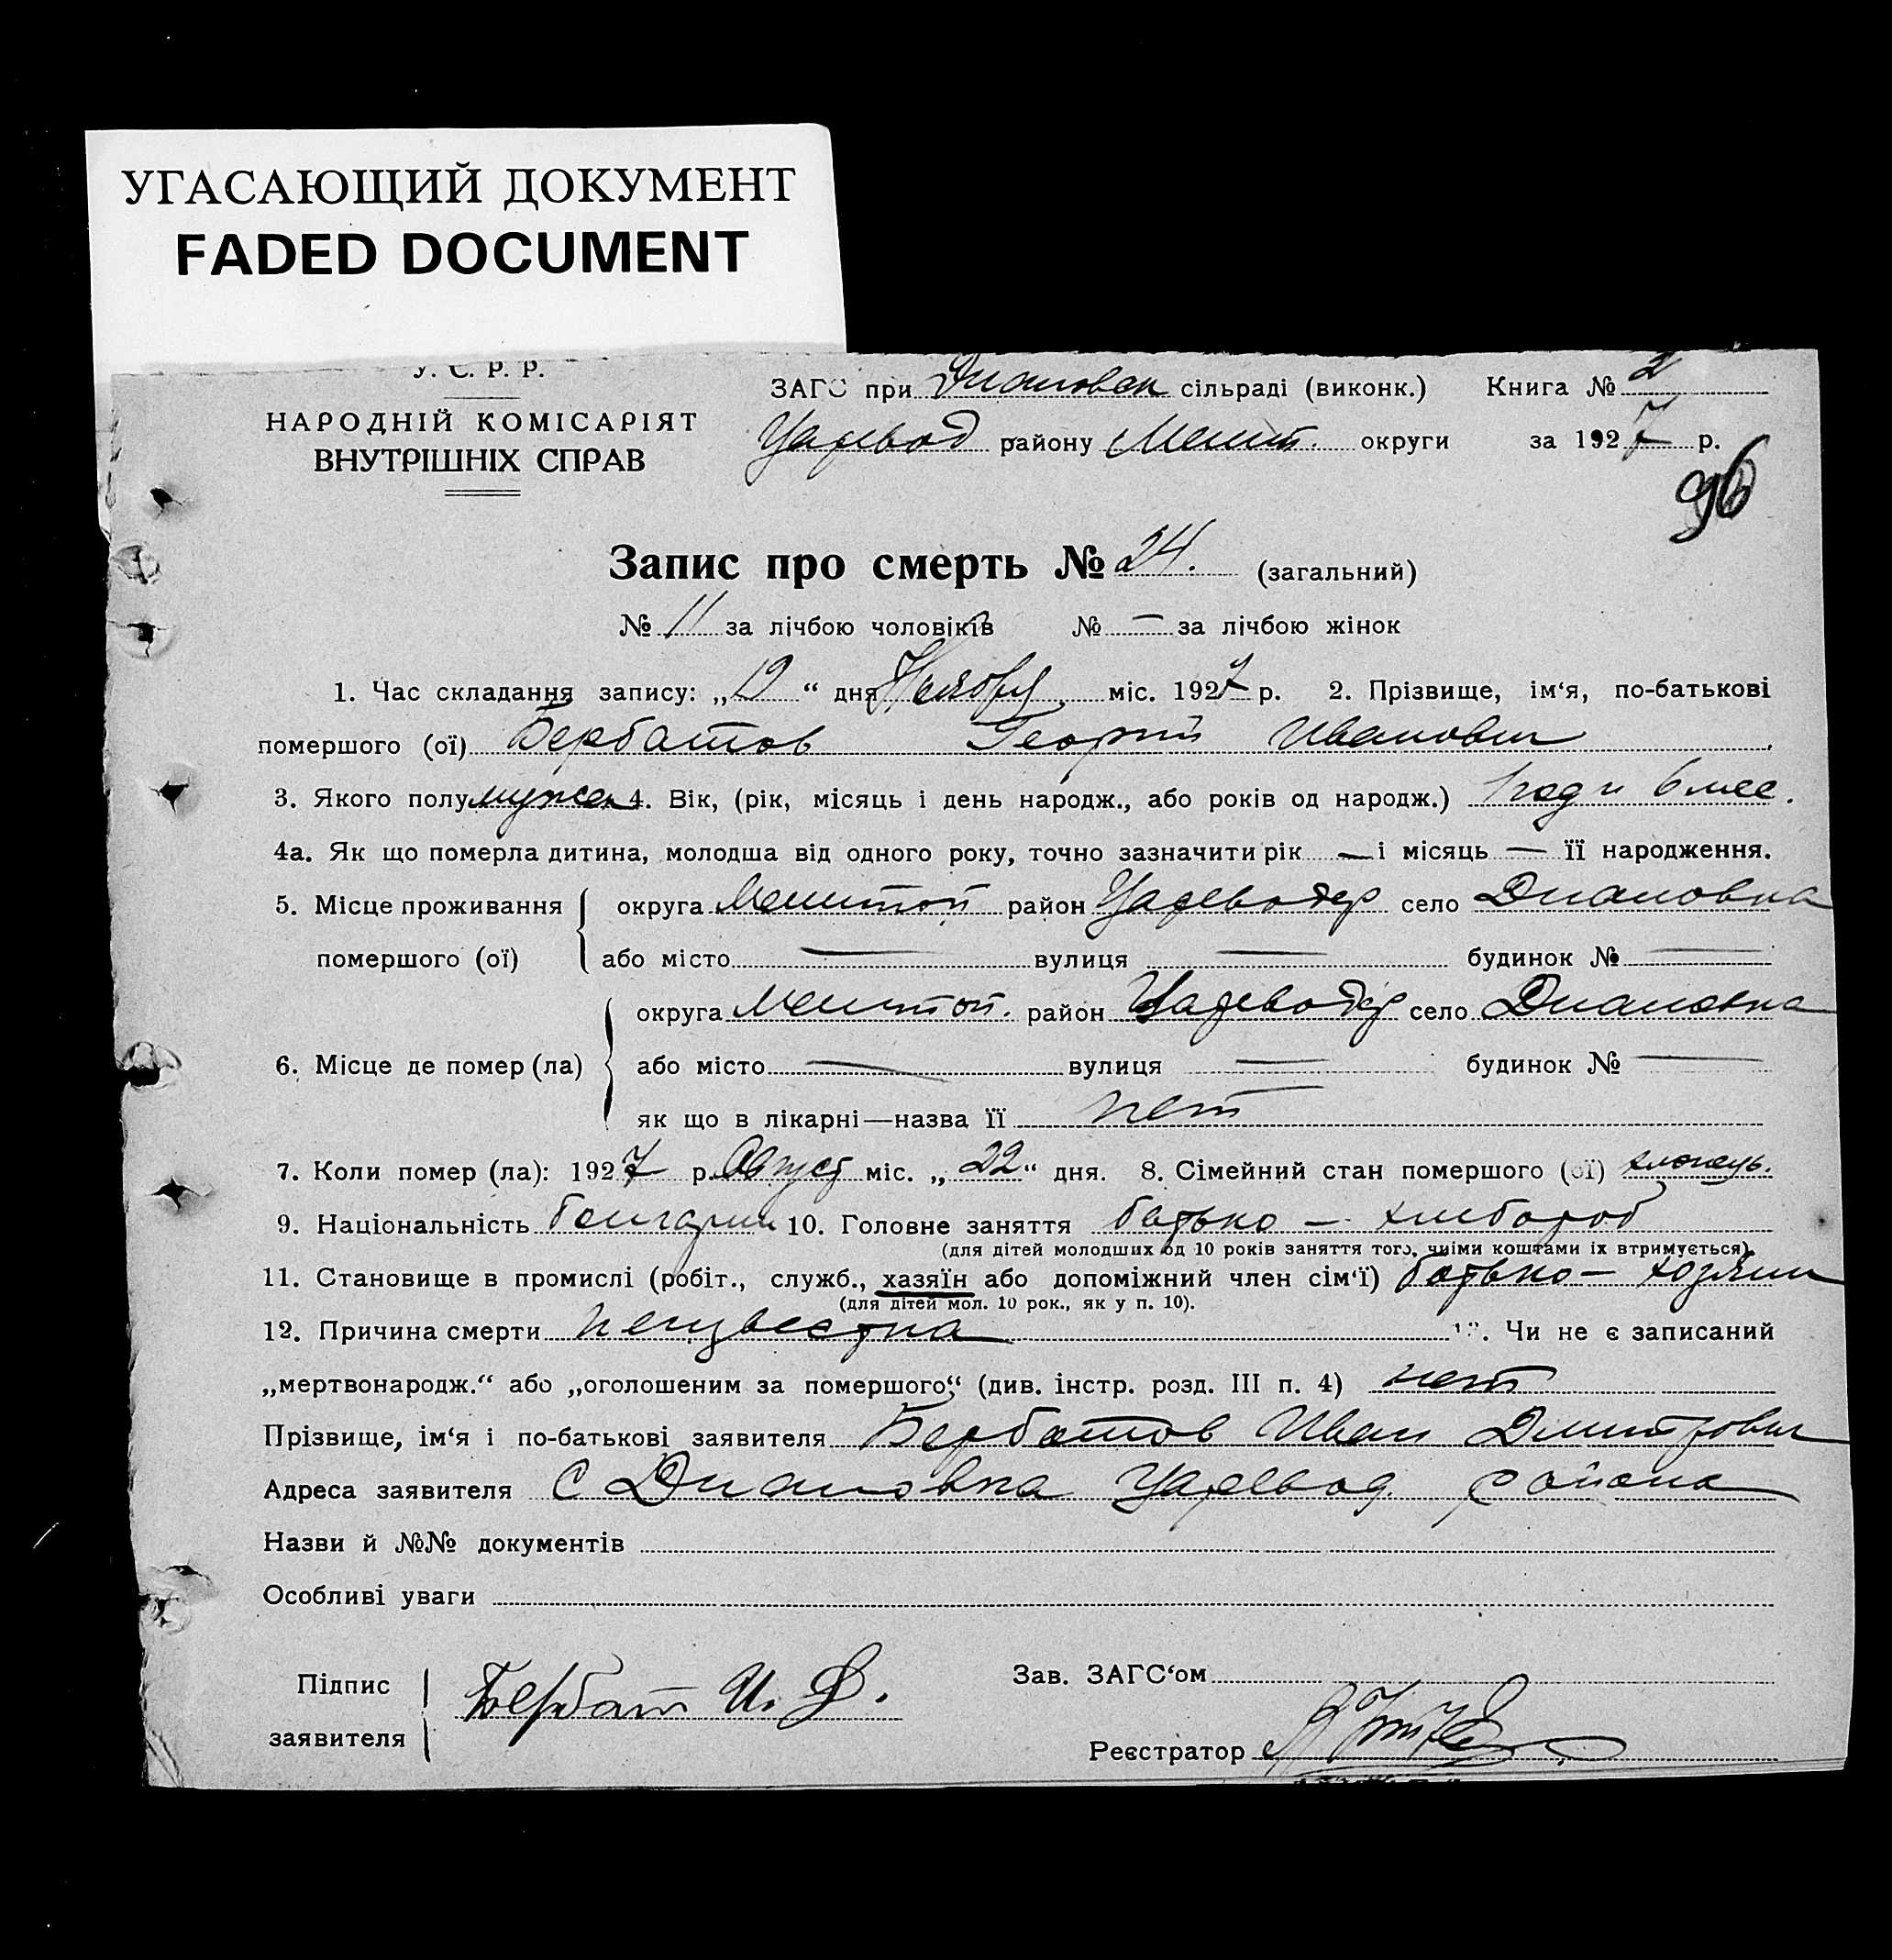 УГАСАЮЩИЙ ДОКУМЕНТ
FADED DOCUMENT
У. С. Р. Р.
НАРОДНІЙ КОМІСАРІЯТ
ВНУТРІШНІХ СПРАВ
ЗАГС при Диановск сільраді (виконк.) Книга № 2
Царевод району Мелит. округи за 1927 р.
96
Запис про смерть № 24. (загальний)
№ 11 за лічбою чоловіків № — за лічбою жінок
1. Час складання запису: „ “ дня Ноября міс. 1927 р. 2. Прізвище, ім‘я, по-батькові
помершого (ої) Бербатов Георгий Иванович
3. Якого полу мужск 4. Вік, (рік, місяць і день народж., або років од народж.) 1 год и 6 мес.
4а. Як що померла дитина, молодша від одного року, точно зазначити рік — і місяць — її народження.
5. Місце проживання округа Мелитоп район Цареводар село Диановка
помершого (ої) або місто — вулиця — будинок № —
округа Мелитоп. район Цареводар село Диановка
6. Місце де помер (ла) або місто — вулиця — будинок № —
як що в лікарні—назва її нет
7. Коли помер (ла): 1927 р. Август міс. „22“ дня. 8. Сімейний стан помершого (ої) хлопець.
9. Національність болгарин 10. Головне заняття батько — хлибороб
(для дітей молодших од 10 років заняття того, чиїми коштами їх втримується)
11. Становище в промислі (робіт., служб., хазяїн або допоміжний член сім‘ї) батько — хозяин
(для дітей мол. 10 рок., як у п. 10).
12. Причина смерти неизвестна 13. Чи не є записаний
„мертвонародж.“ або „оголошеним за помершого“ (див. інстр. розд. III п. 4) нет
Прізвище, ім‘я і по-батькові заявителя Бербатов Иван Дмитрович
Адреса заявителя С Диановка Царевод. района
Назви й №№ документів
Особливі уваги
Підпис
заявителя Бербат И. Д.
Зав. ЗАГС‘ом
Реєстратор